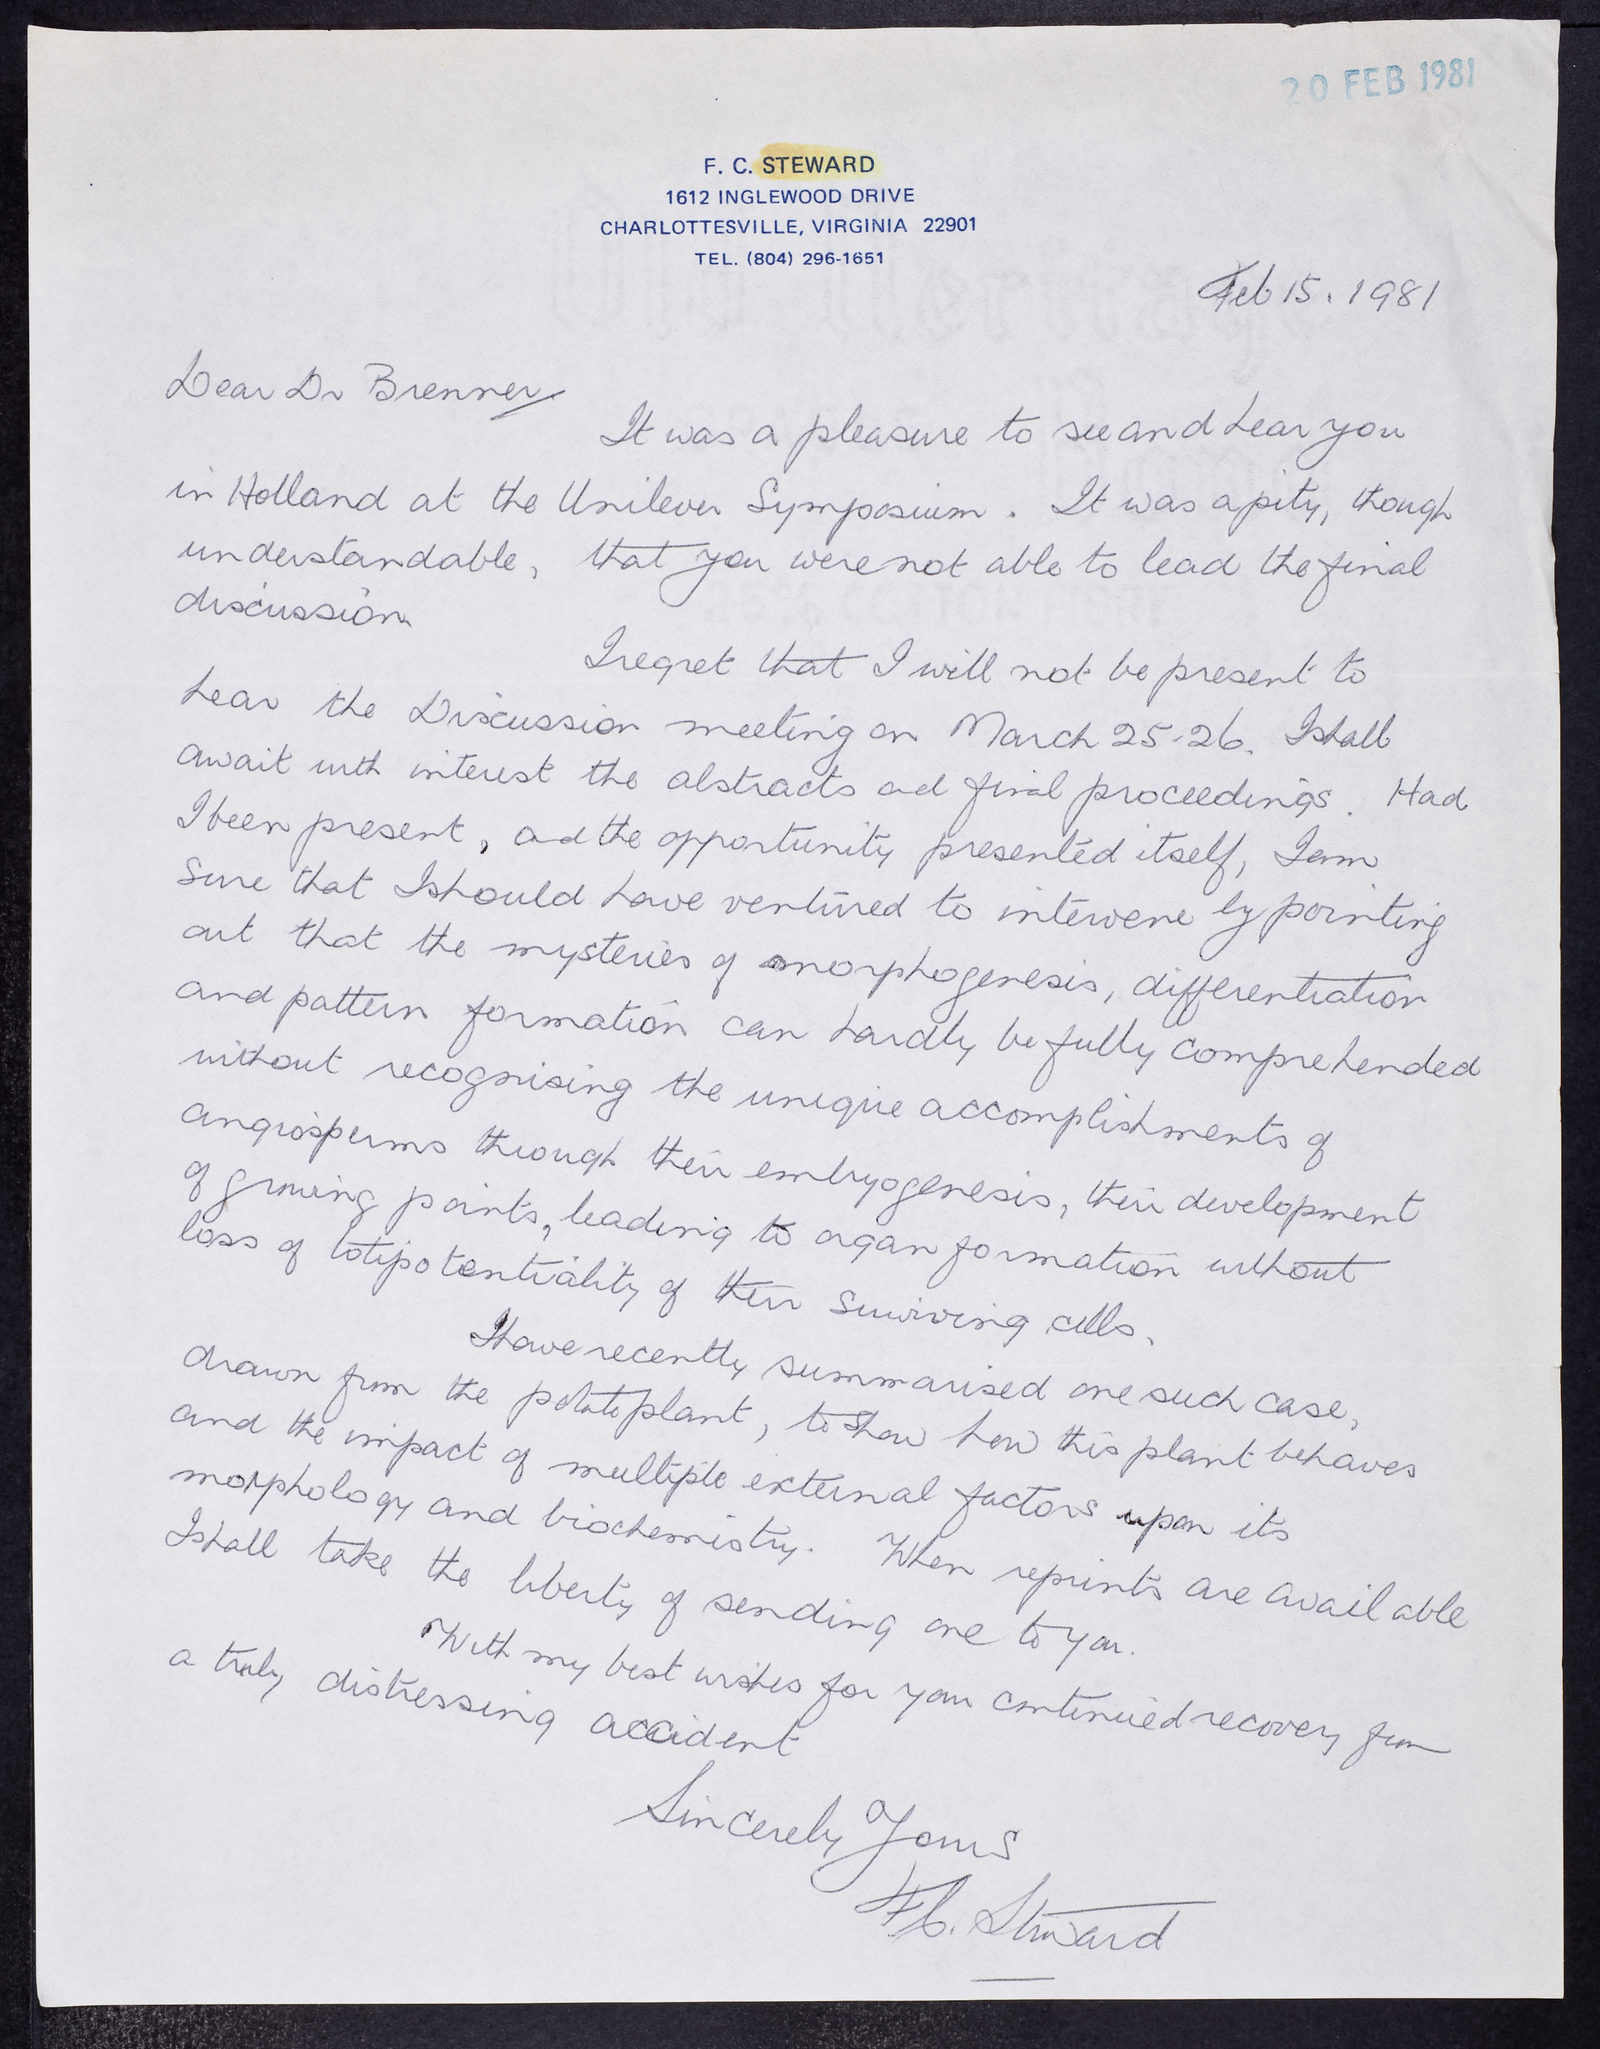 20 FEB 1981
F. C. STEWARD
1612 INGLEWOOD DRIVE
CHARLOTTESVILLE, VIRGINIA 22901
TEL. (804) 296-1651
Feb 15. 1981
Dear Dr Brenner
It was a pleasure to see and hear you
in Holland at the Unilever Symposium. It was a pity, though
understandable, that you were not able to lead the final
discussion.
I regret that I will not be present to
hear the Discussion meeting on March 25-26. I shall
await with interest the abstracts and final proceedings. Had
I been present, and the opportunity presented itself, I am
sure that I should have ventured to intervene by pointing
out that the mysteries of morphogenesis, differentiation
and pattern formation can hardly be fully comprehended
without recognising the unique accomplishments of
angiosperms through their embryogenesis, their development
of growing points, leading to organ formation without
loss of totipotentiality of their surviving cells.
I have recently summarised one such case,
drawn from the potato plant, to show how this plant behaves
and the impact of multiple external factors upon its
morphology and biochemistry. When reprints are available
I shall take the liberty of sending one to you.
With my best wishes for your continued recovery from
a truly distressing accident
Sincerely Yours
F.C. Steward